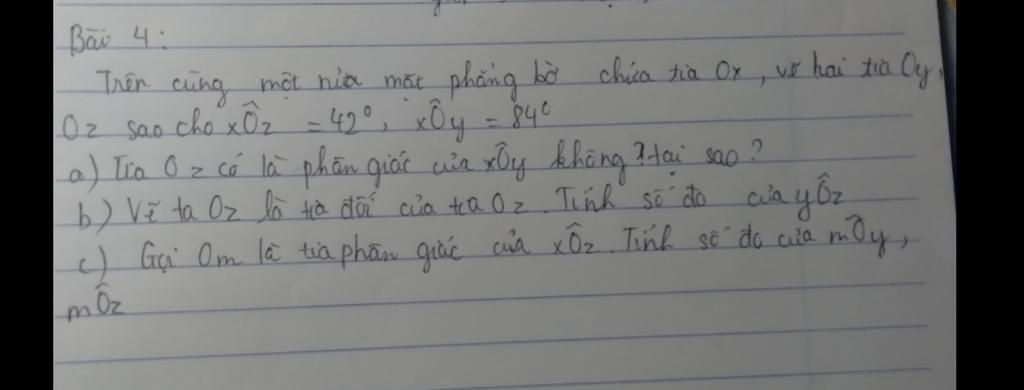 Bài 4:
Trên cùng một nửa mặt phẳng bờ chứa tia Ox, vẽ hai tia Oy,
Oz sao cho xÔz = 42°, xÔy = 84°
a) Tia Oz có là phân giác của xÔy không? tại sao?
b) Vẽ ta Oz là tia đối của tia Oz. Tính số đo của yÔz
c) Gọi Om là tia phân giác của xÔz. Tính số đo của mÔy,
mÔz